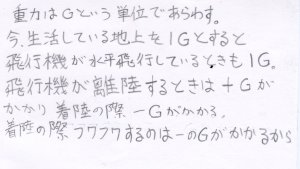 重力はGという単位であらわす。
今、生活している地上を1Gとすると
飛行機が水平飛行しているときも1G。
飛行機が離陸するときは+Gが
かかり着陸の際-Gがかかる。
着陸の際フワフワするのは-のGがかかるから